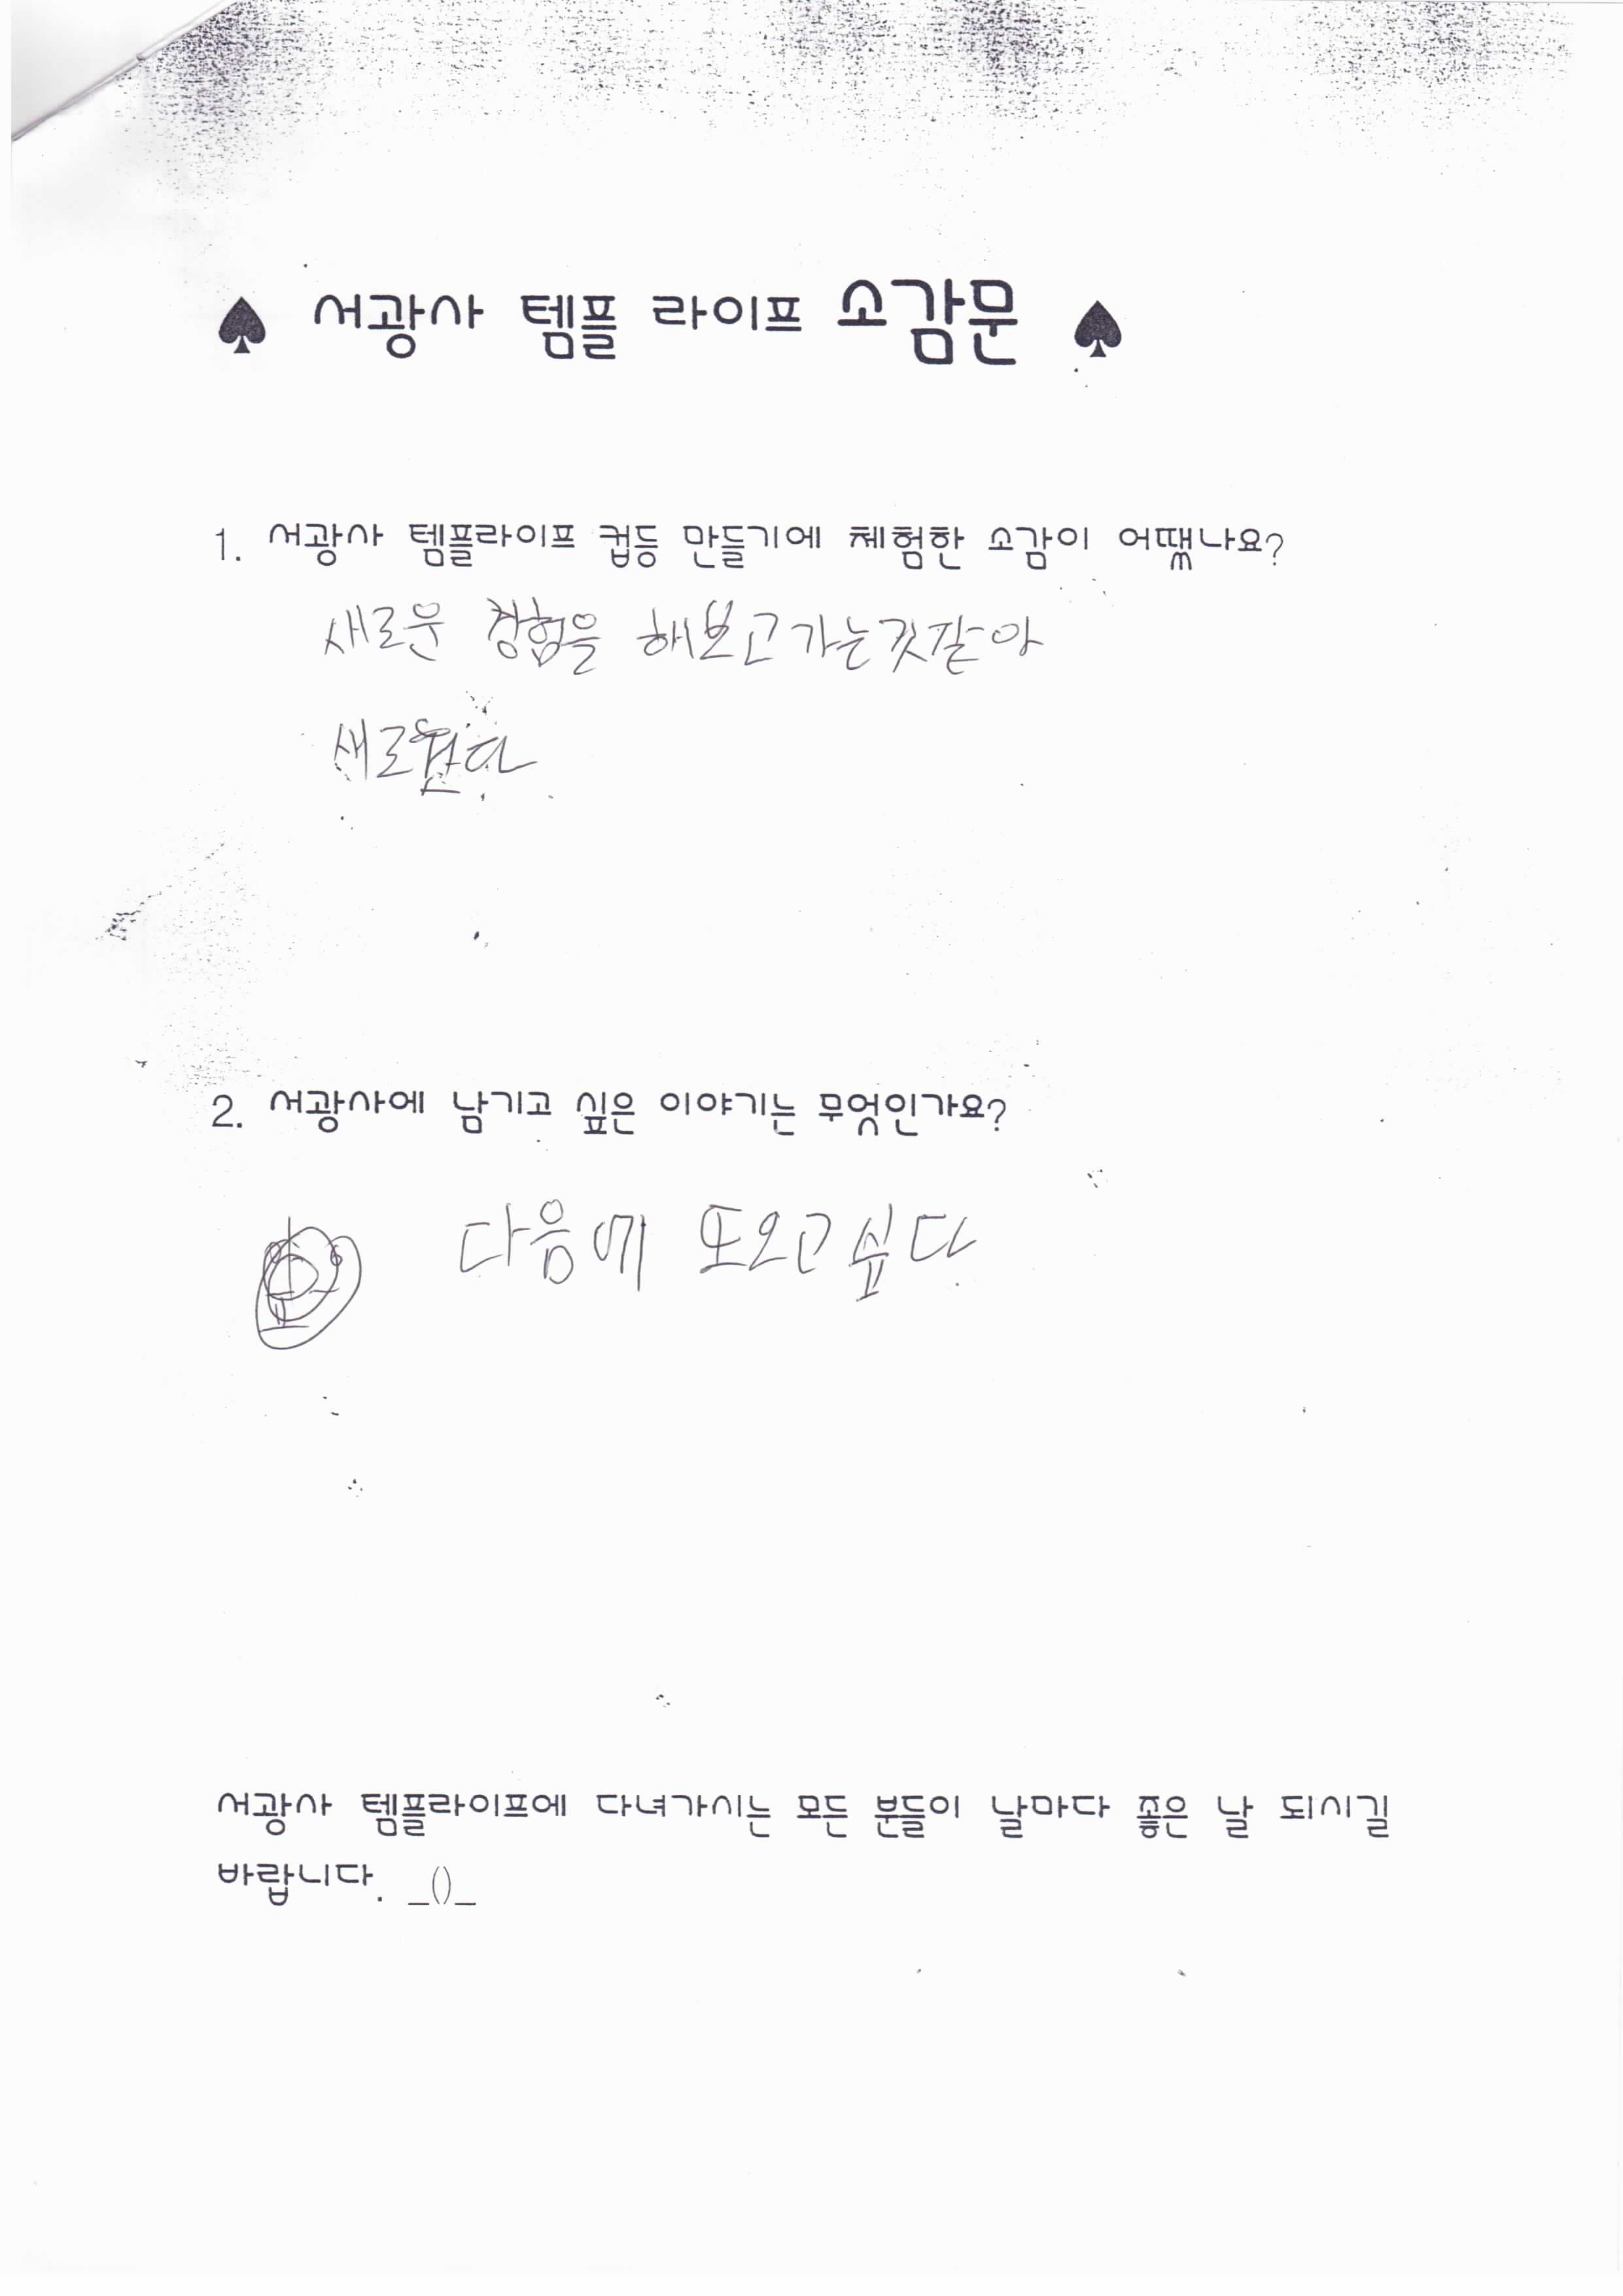 ♠ 서광사 템플 라이프 소감문 ♠
1. 서광사 템플라이프 컵등 만들기에 체험한 소감이 어땠나요?
새로운 경험을 해보고가는것같아
새로웠다
2. 서광사에 남기고 싶은 이야기는 무엇인가요?
다음에 또오고싶다
서광사 템플라이프에 다녀가시는 모든 분들이 날마다 좋은 날 되시길
바랍니다. _()_